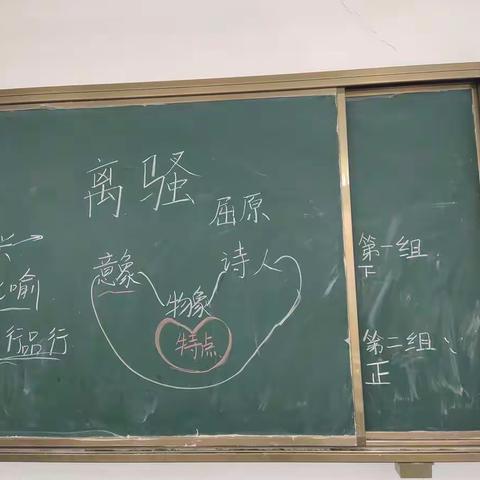 离骚
屈原
兴
喻
行品行
意象
诗人
物象
特点
第一组
下
第二组
正